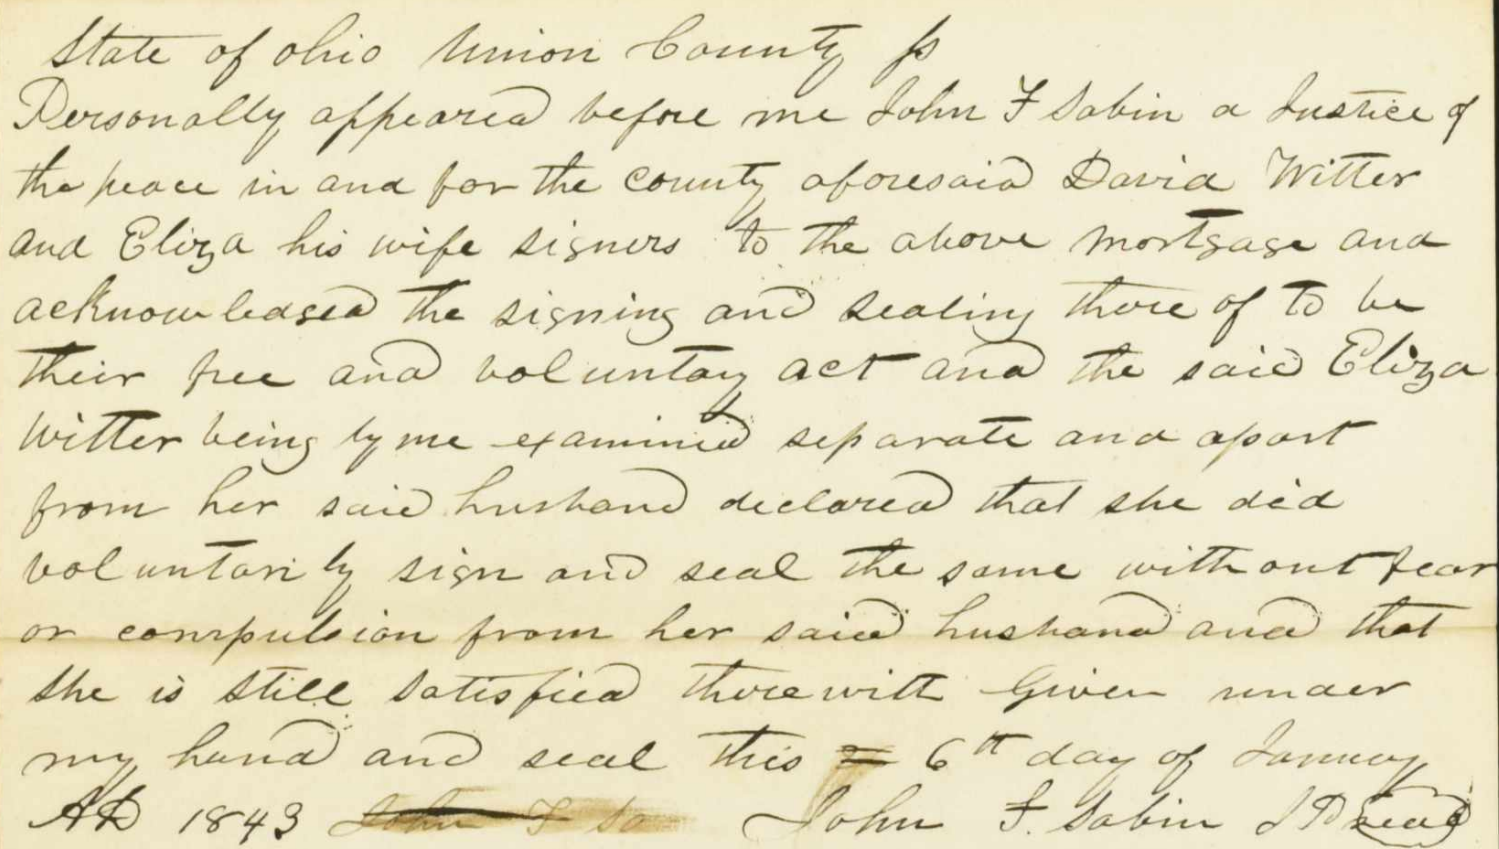 State of Ohio Union County ss
Personally appeared before me John F Sabin a Justice of
the peace in and for the county aforesaid David Witter
and Eliza his wife signers to the above mortgage and
acknowledged the signing and sealing there of to be
their free and voluntary act and the said Eliza
Witter being by me examined separate and apart
from her said husband declared that she did
voluntarily sign and seal the same without fear
or compulsion from her said husband and that
she is still satisfied therewith Given under
my hand and seal this = 6th day of January
AD 1843 John F Sa John F. Sabin J P seal